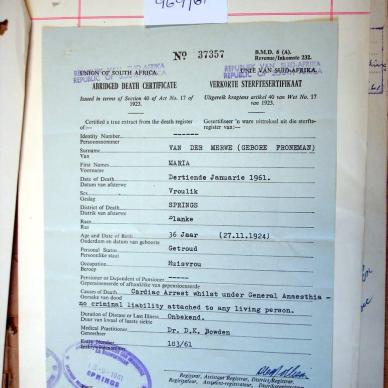 464/61
No 37357
B.M.D. 6 (A).
Revenue/Inkomste 232.
REPUBLIC OF SOUTH AFRICA
REPUBLIEK VAN SUID-AFRIKA
UNION OF SOUTH AFRICA.
UNIE VAN SUID-AFRIKA.
ABRIDGED DEATH CERTIFICATE
VERKORTE STERFTESERTIFIKAAT
Issued in terms of Section 40 of Act No. 17 of 1923.
Uitgereik kragtens artikel 40 van Wet No. 17 van 1923.
Certified a true extract from the death register of:—
Gesertifiseer 'n ware uittreksel uit die sterfte-register van:—
Identity Number ------
Persoonsnommer
Surname VAN DER MERWE (GEBORE FRONEMAN)
Van
First Names MARIA
Voorname
Date of Death Dertiende Januarie 1961.
Datum van afsterwe
Sex Vroulik
Geslag
District of Death SPRINGS
Distrik van afsterwe
Race Blanke
Ras
Age and Date of Birth 36 Jaar (27.11.1924)
Ouderdom en datum van geboorte
Personal Status Getroud
Persoonlike staat
Occupation Huisvrou
Beroep
Pensioner or Dependent of Pensioner -----
Gepensioeneerde of afhanklike van gepensioeneerde
Causes of Death Cardiac Arrest whilst under General Annesthia -
Oorsake van dood no criminal liability attached to any living person.
Duration of Disease or Last Illness Onbekend.
Duur van kwaal of laaste siekte
Medical Practitioner Dr. D.K. Bowden
Geneesheer
Entry Number 183/61
Inskrywingsnommer
1961
SPRINGS
Registrar, Assistant Registrar, District Registrar,